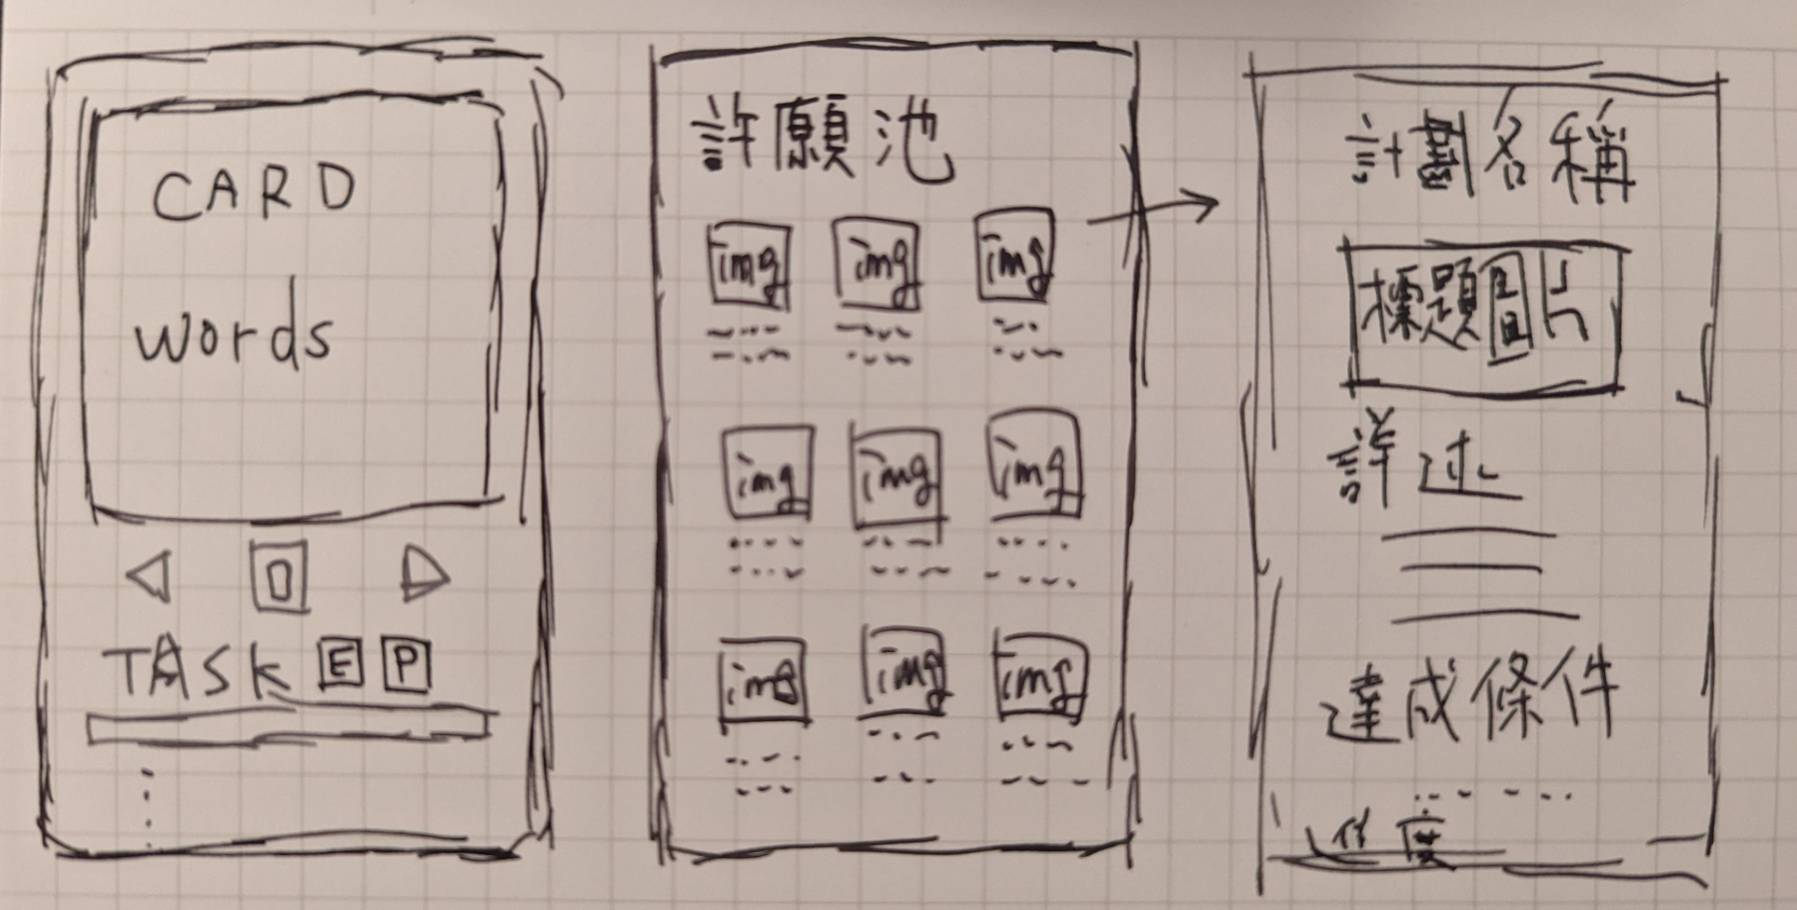 CARD
words
TASK E P
許願池
img img img
img img img
img img img
計劃名稱
標題圖片
詳述
達成條件
進度